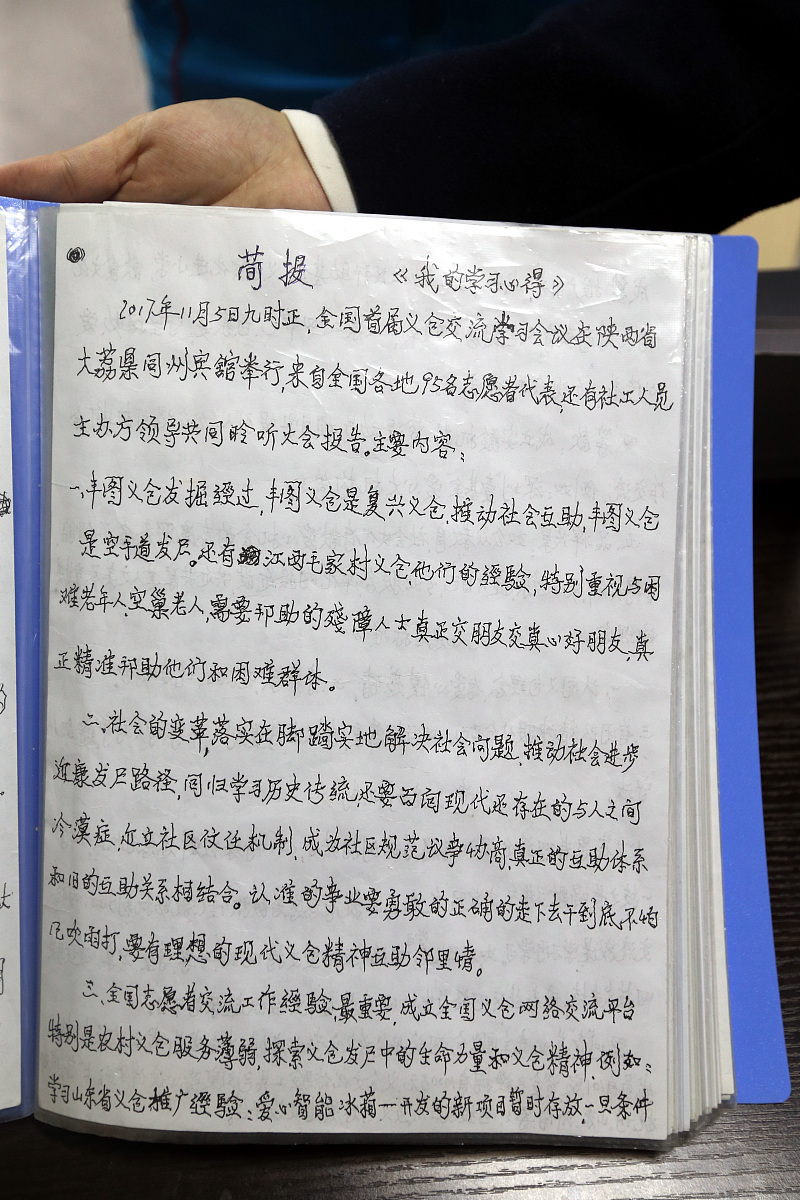 简报 《我的学习心得》
2017年11月5日九时正,全国首届义仓交流学习会议在陕西省
大荔県同州宾舘举行,来自全国各地95名志愿者代表,还有社工人员
主办方领导共同聆听大会报告。主要内容:
一、丰图义仓发掘经过,丰图义仓是复兴义仓,推动社会互助,丰图义仓
是空手道发尸。还有江西毛家村义仓,他们的经验,特别重视与困
难老年人、空巢老人,需要邦助的残障人士真正交朋友交真心好朋友,真
正精准邦助他们和困难群体。
二、社会的变革,落实在脚踏实地解决社会问题,推动社会进步
近康发尸路径,同归学习历史传统,还要面向现代还存在的与人之间
冷漠症,建立社区信任机制,成为社区规范议事协商,真正的互助体系
和旧的互助关系相结合。认准的事业要勇敢的正确的走下去干到底,不怕
风吹雨打,要有理想的现代义仓精神互助邻里情。
三、全国志愿者交流工作经验,最重要,成立全国义仓网络交流平台
特别是农村义仓服务薄弱,探索义仓发尸中的生命力量和义仓精神.例如:
学习山东省义仓推广经验:爱心智能冰箱一开发的新项目暂时存放,一旦条件